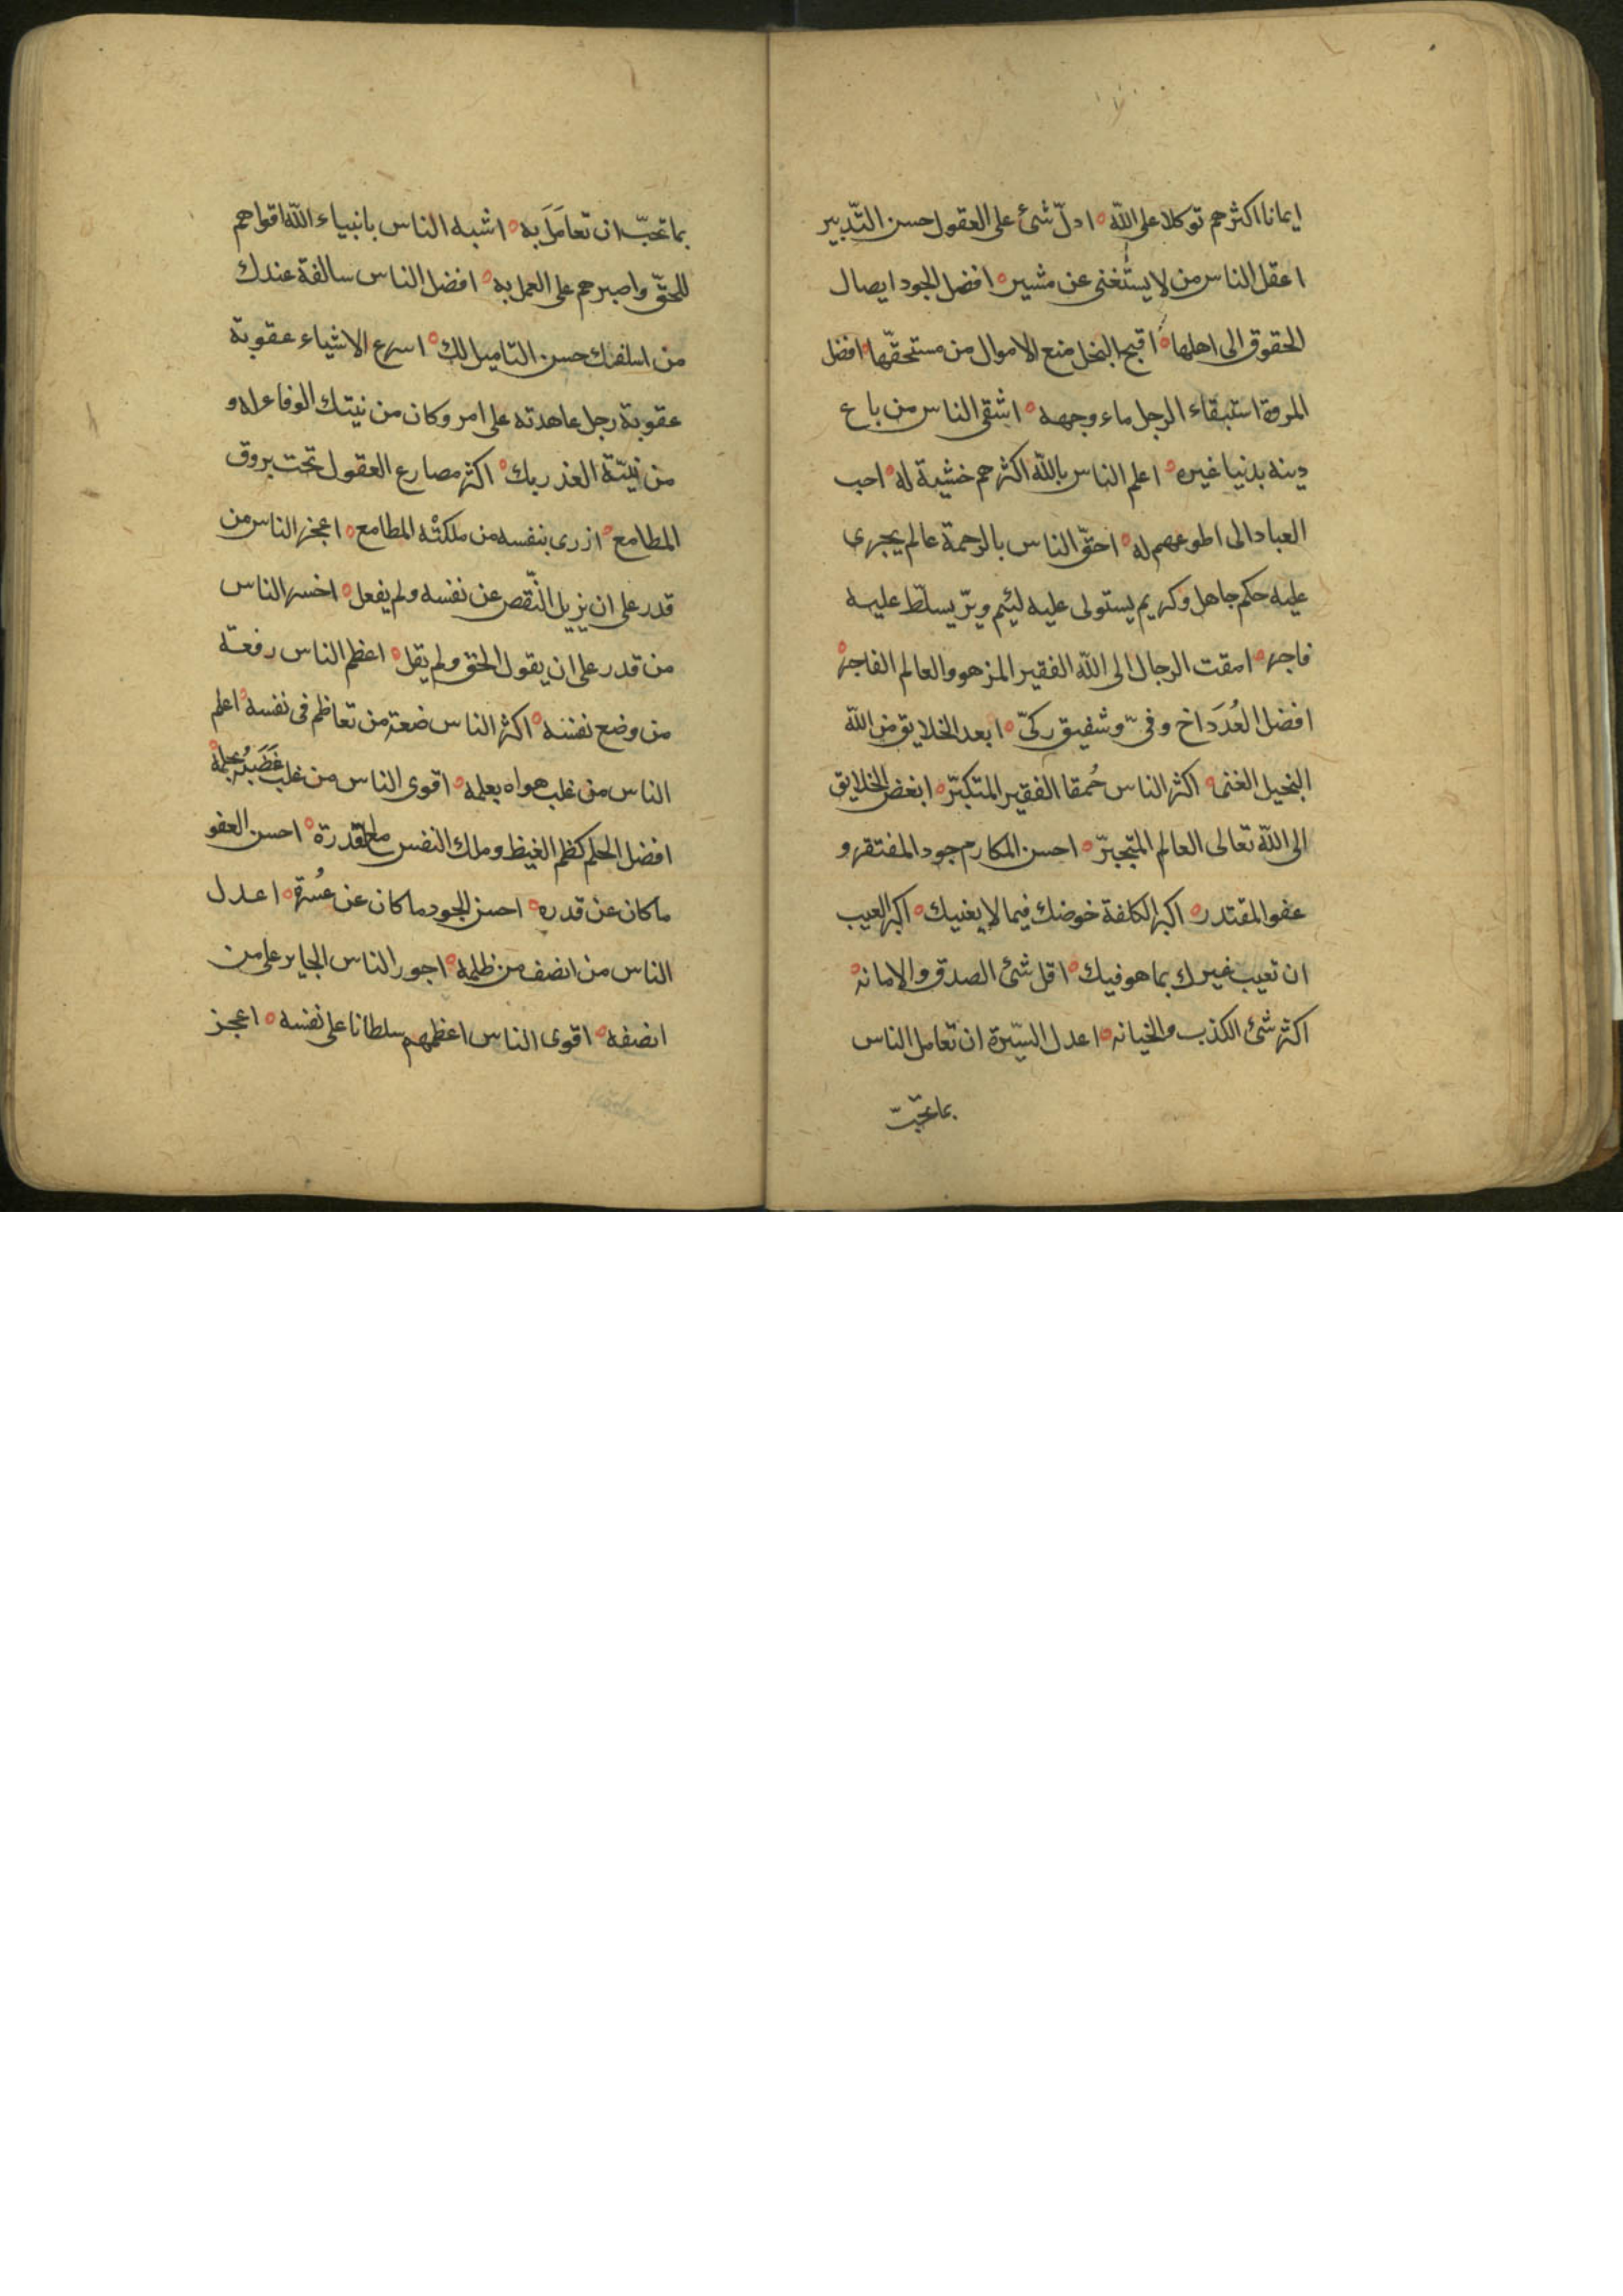 ايمانا اكثرهم توكلا على الله ه ادلّ شئ على العقول حسن التّدبير
اعقل الناس من لا يستغنى عن مشير ه افضل الجود ايصال
الحقوق الى اهلها ه اقبح البخل منع الاموال من مستحقّها ه افضل
المروة استبقاء الرجل ماء وجهه ه اشقى الناس من باع
دينه بدنيا غيره ه اعلم الناس بالله اكثرهم خشية له ه احب
العباد الى اطوعهم له ه احقّ الناس بالرحمة عالم يجرى
عليه حكم جاهل وكريم يستولى عليه لئيم وبرّ يسلّط عليه
فاجر ه امقت الرجال الى الله الفقير المزهو والعالم الفاجر ه
افضل العُدَد اخ وفىّ وشفيق زكىّ ه ابعد الخلايق من الله
البخيل الغنى ه اكثر الناس حُمقا الفقير المتكبّر ه ابغض الخلايق
الى الله تعالى العالم المتجبرّ ه احسن المكارم جود المفتقر و
عفو المقتدر ه اكبر الكلفة خوضك فيما لا يعنيك ه اكبر العيب
ان تعيب غيرك بما هو فيك ه اقل شئ الصدق والامانه ه
اكثر شئ الكذب والخيانه ه اعدل السّيرة ان تعامل الناس
بما تحبّ
بما تحبّ ان تعامَلَ به ه اشبه الناس بانبياء الله اقواهم
للحقّ واصبرهم على العمل به ه افضل الناس سالفة عندك
من اسلفك حسن التاميل لك ه اسرع الاشياء عقوبة
عقوبة رجل عاهدته على امر وكان من نيتك الوفاء له و
من نيّته الغدر بك ه اكثر مصارع العقول تحت بروق
المطامع ه ازرى بنفسه من ملكتْه المطامع ه اعجز الناس من
قدر على ان يزيل النّقص عن نفسه ولم يفعل ه اخسر الناس
من قدر على ان يقول الحق ولم يقل ه اعظم الناس رفعة
من وضع نفسه ه اكثر الناس ضعة من تعاظم فى نفسه ه اعلم
الناس من غلب هواه بعلمه ه اقوى الناس من غلب غَضَبُه بحلمه ه
افضل الحلم كظم الغيظ وملك النفس مع القدرة ه احسن العفو
ما كان عن قدره ه احسن الجود ما كان عن عُسرة ه اعدل
الناس من انصف من ظلمه ه اجور الناس الجاير على من
انصفه ه اقوى الناس اعظمهم سلطانا على نفسه ه اعجز